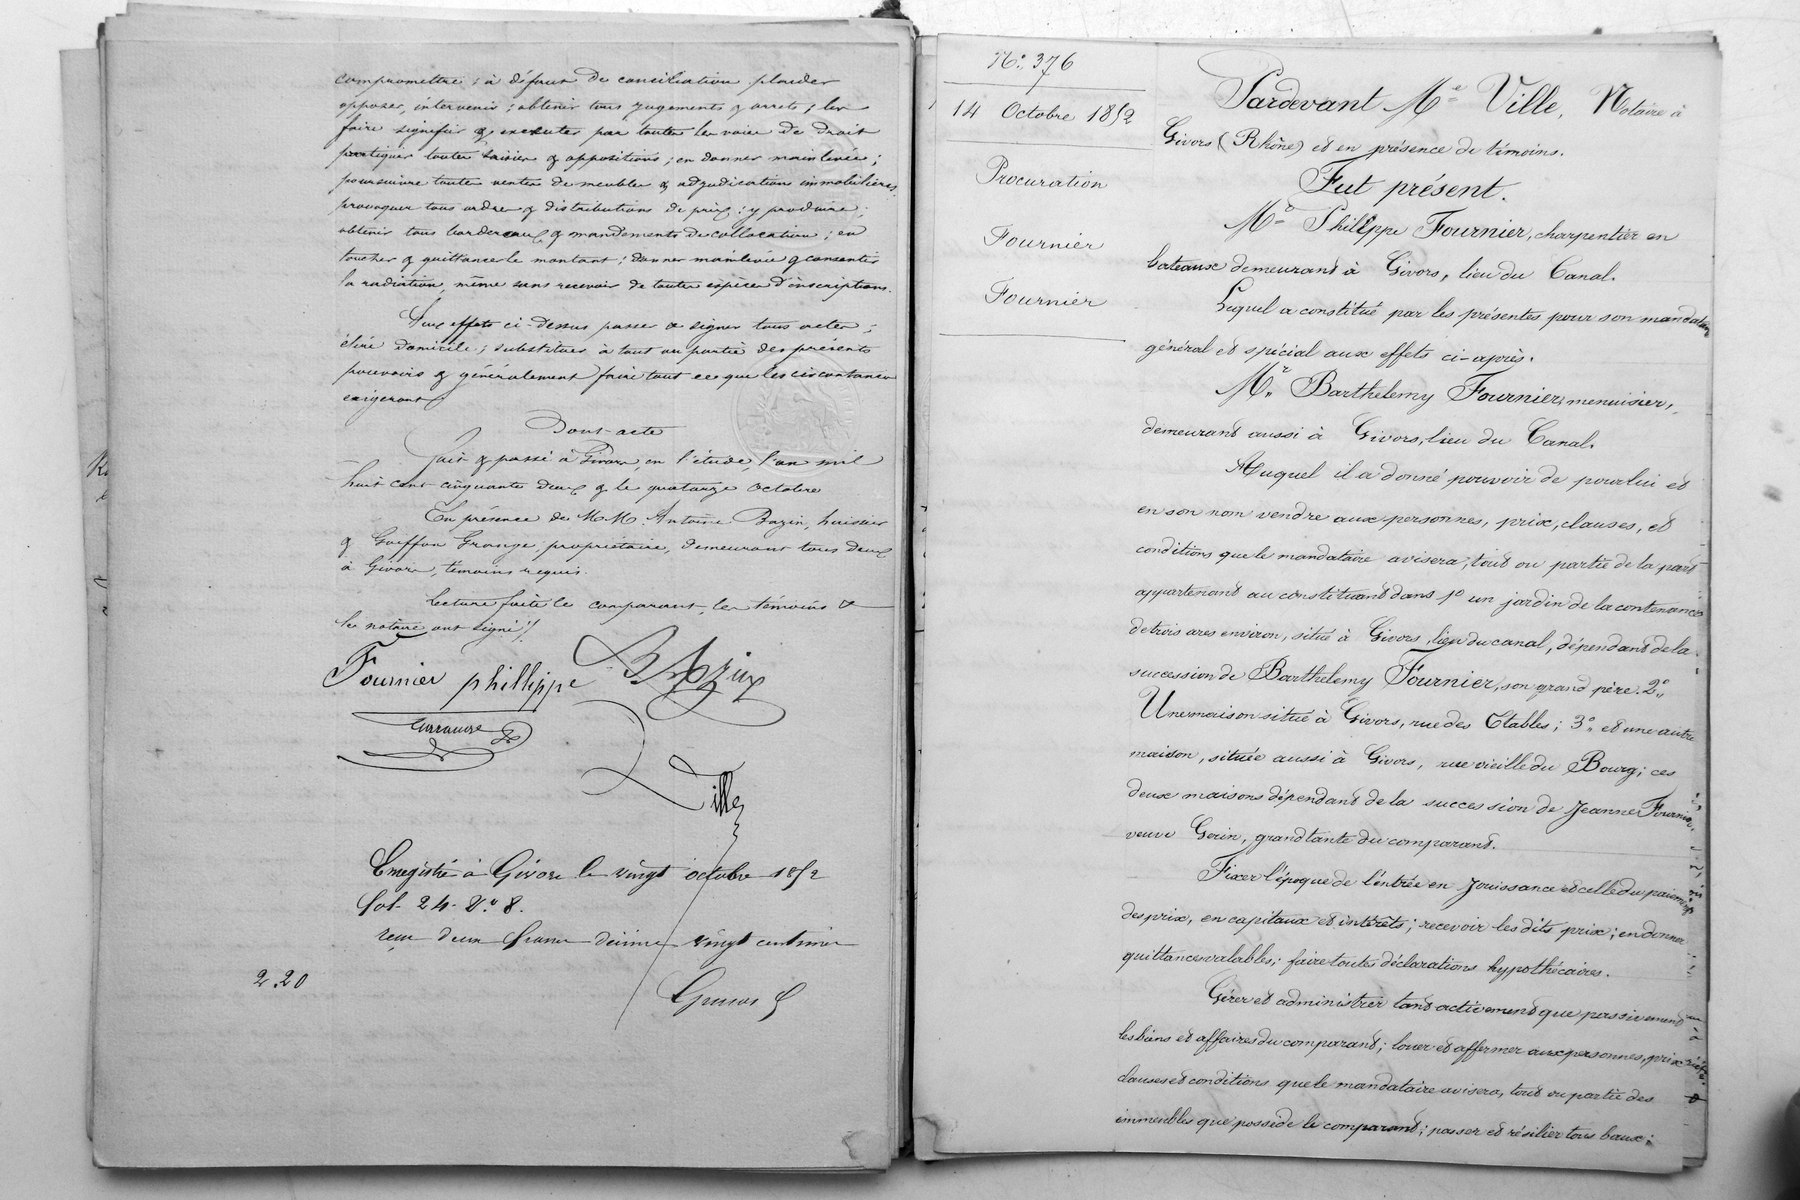 compromettre ; à défaut de conciliation plaider
opposer, intervenir ; obtenir tous jugements & arrets ; les
faire signifier & executer par toutes les voies de droit
pratiquer toutes saisies & oppositions ; en donner mainlevée ;
poursuivre toutes ventes de meubles & adjudications immobilières
provoquer tous ordres & distributions de prix ; y produire ;
obtenir tous bordereaux & mandements de collocation ; en
toucher & quittancer le montant ; donner mainlevée & consentir
la radiation, même sans recevoir de toutes espèces d'inscriptions.
Aux effets ci-dessus passer & signer tous actes ;
élire domicile ; substituer à tout ou partie des présents
pouvoirs & généralement faire tout ce que les circonstances
exigeront
Dont-acte
Fait & passé à Givors, en l'étude, l'an mil
huit cent cinquante deux & le quatorze octobre
En présence de M.M. Antoine Bazin, huissier
& Goiffon Grange, propriétaire, demeurant tous deux
à Givors, témoins requis.
Lecture faite le comparant, les témoins &
le notaire ont signé ./.
Fournier phillippe Bazin
Ville
Enregistré à Givors le vingt octobre 1852
fol. 24. Vo. 8.
reçu deux francs décime vingt centimes
2.20
No. 376
14 Octobre 1852
Procuration
Fournier
Fournier
Pardevant Me Ville, Notaire à
Givors (Rhône) et en présence de témoins.
Fut présent.
Mr Phillppe Fournier, charpentier en
bateaux demeurant à Givors, lieu du Canal.
Lequel a constitué par les présentes pour son mandataire
général et spécial aux effets ci-après.
Mr Barthelemy Fournier, menuisier,
demeurant aussi à Givors, lieu du Canal.
Auquel il a donné pouvoir de pour lui et
en son nom vendre aux personnes, prix, clauses, et
conditions que le mandataire avisera, tout ou partie de la part
appartenant au constituant dans 1o un jardin de la contenance
de trois ares environ, situé à Givors, lieu du canal, dépendant de la
succession de Barthelemy Fournier, son grand père. 2o
Une maison situé à Givors, rue des Etables ; 3o et une autre
maison, située aussi à Givors, rue vieille du Bourg ; ces
deux maisons dépendant de la succession de Jeanne Fournier,
veuve Gorin, grand tante du comparant.
Fixer l'époque de l'entrée en jouissance et celle du paiement
des prix, en capitaux et intérêts ; recevoir les dits prix ; en donner
quittances valables ; faire toutes déclarations hypothécaires.
Gérer et administrer tant activement que passivement
les biens et affaires du comparant ; louer et affermer aux personnes, prix
clauses et conditions que le mandataire avisera, tout ou partie des
immeubles que possède le comparant ; passer et résilier tous baux ;